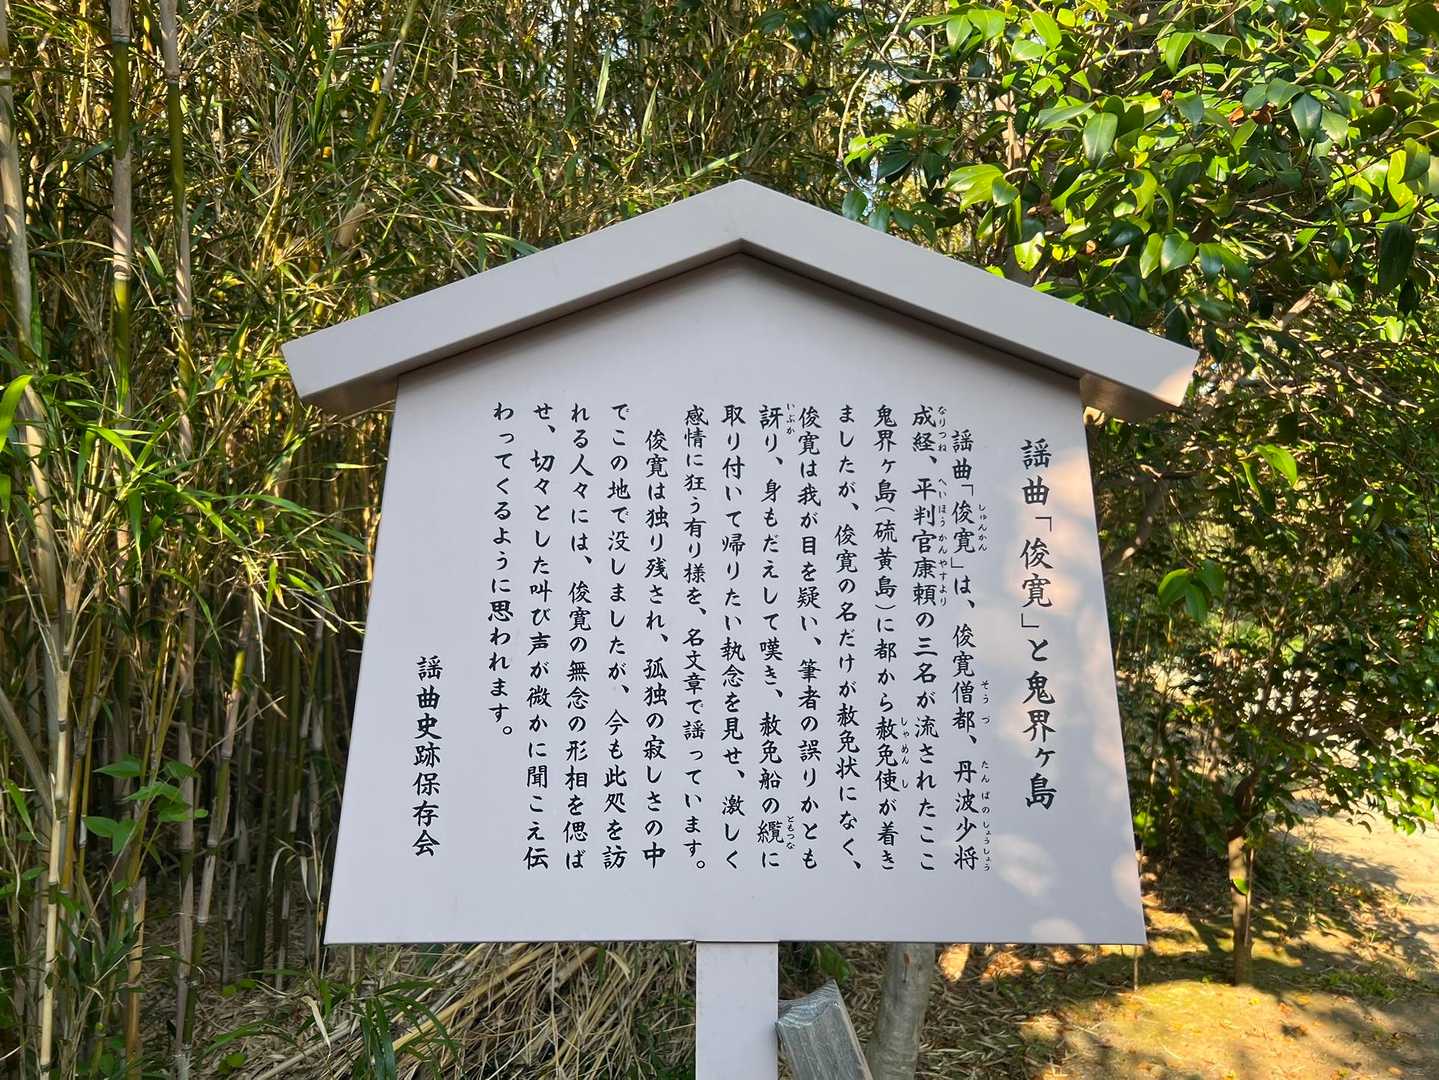 謡曲「俊寛」と鬼界ヶ島
謡曲「俊寛」は、俊寛僧都、丹波少将
成経、平判官康頼の三名が流されたここ
鬼界ヶ島(硫黄島)に都から赦免使が着き
ましたが、俊寛の名だけが赦免状になく、
俊寛は我が目を疑い、筆者の誤りかとも
訝り、身もだえして嘆き、赦免船の纜に
取り付いて帰りたい執念を見せ、激しく
感情に狂う有り様を、名文章で謡っています。
俊寛は独り残され、孤独の寂しさの中
でこの地で没しましたが、今も此処を訪
れる人々には、俊寛の無念の形相を偲ば
せ、切々とした叫び声が微かに聞こえ伝
わってくるように思われます。
謡曲史跡保存会